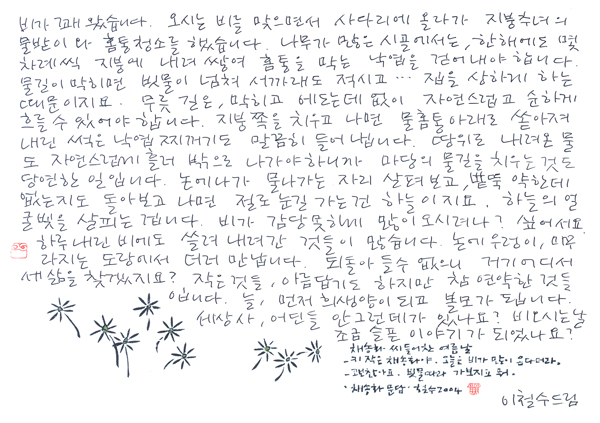 비가 꽤 왔습니다. 오시는 비를 맞으면서 사다리에 올라가 지붕추녀의
물받이와 홈통청소를 했습니다. 나무가 많은 시골에서는, 한해에도 몇
차례씩 지붕에 내려 쌓여 홈통을 막는 낙엽을 걷어내야 합니다.
물길이 막히면 빗물이 넘쳐 서까래도 적시고… 집을 상하게 하는
때문이지요. 무릇 길은, 막히고 에도는데 없이 자연스럽고 순하게
흐를 수 있어야 합니다. 지붕쪽을 치우고 나면 물홈통아래로 쏟아져
내린 썩은 낙엽찌꺼기도 말끔히 들어냅니다. 땅위로 내려온 물
도 자연스럽게 흘러 밖으로 나가야하니까 마당의 물길을 치우는 것도
당연한 일입니다. 논에나가 물나가는 자리 살펴보고, 밭뚝 약한데
없는지도 돌아보고 나면 절로 눈길 가는건 하늘이지요. 하늘의 얼
굴빛을 살피는 겁니다. 비가 감당못하게 많이 오시려나? 싶어서요.
하루 내린 비에도 쓸려 내려간 것들이 많습니다. 논에 우렁이, 미꾸
라지는 도랑에서 더러 만납니다. 되돌아 들수 없으니 거기 어디서
새 삶을 찾겠지요? 작은것들, 아름답기도 하지만 참 연약한 것들
입니다. 늘, 먼저 희생양이 되고 볼모가 됩니다.
세상사, 어딘들 안그런데가 있나요? 비오시는날
조금 슬픈 이야기가 되었나요?
채송화 씨들어찬 여름날
-키작은 채송화야. 오늘은 비가 많이 온다더라.
-괜찮아요. 빗물따라 가보지요 뭐.
·채송화 문답· 철수 2004
이철수 드림